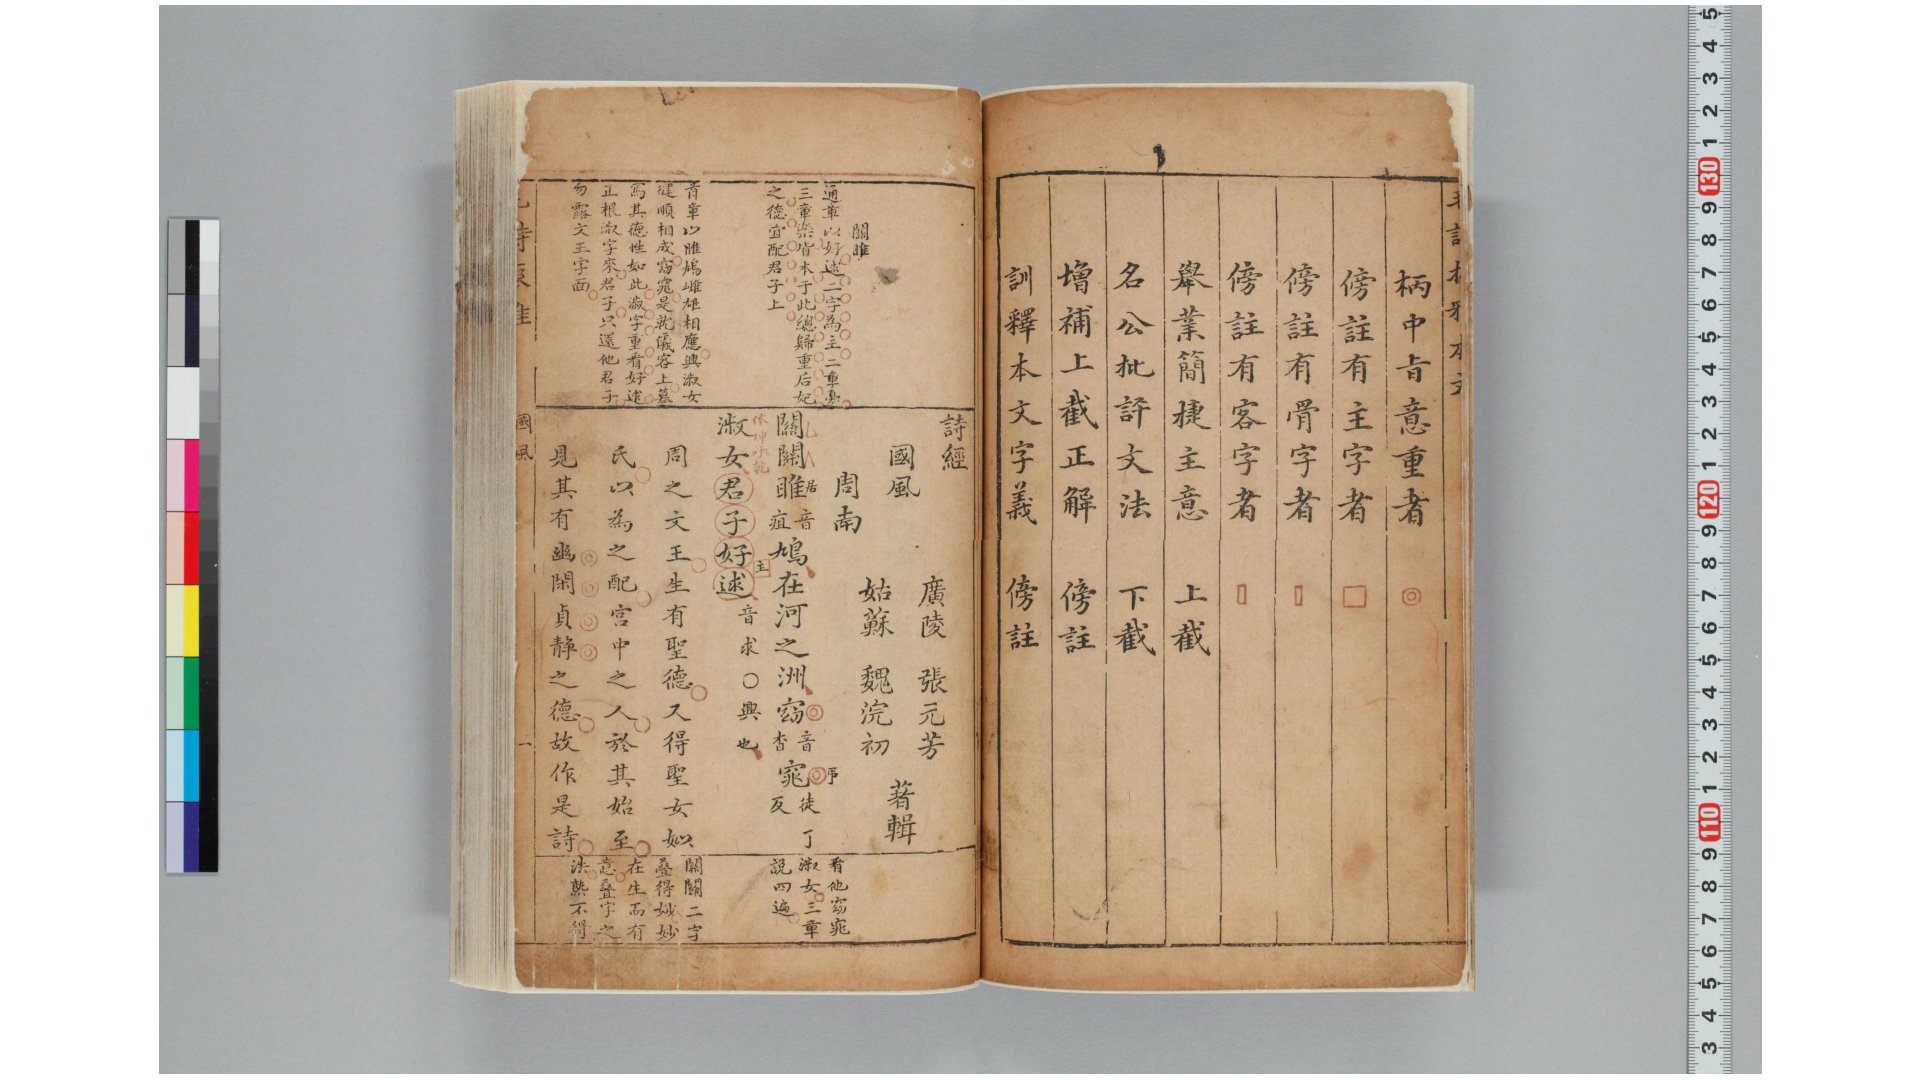 柄中旨意重者 ◎
傍註有主字者 □
傍註有骨字者 ▯
傍註有客字者 ▯
舉業簡捷主意 上截
名公批評文法 下截
增補上截正解 傍註
訓釋本文字義 傍註
關雎
通章以好逑二字為主二章憂
三章樂皆本于此總歸重后妃
之德宜配君子上
首章以雎鳩雌雄相應興淑女
健順相成窈窕是就儀容上摹
寫其德性如此淑字重看好逑
正根淑字來君子只還他君子
勿露文王字面
詩經
國風
周南
廣陵 張元芳
姑蘇 魏浣初
著輯
關關雎音居疽鳩在河之洲窈音杳窕徒丁反
淑女君子好逑音求○興也
依坤承乾
主
周之文王生有聖德又得聖女姒
氏以為之配宮中之人於其始至
見其有幽閑貞靜之德故作是詩
看他窈窕
淑女三章
說四遍
關關二字
叠得妙妙
在生而有
意叠字之
法槩不得
國風
一